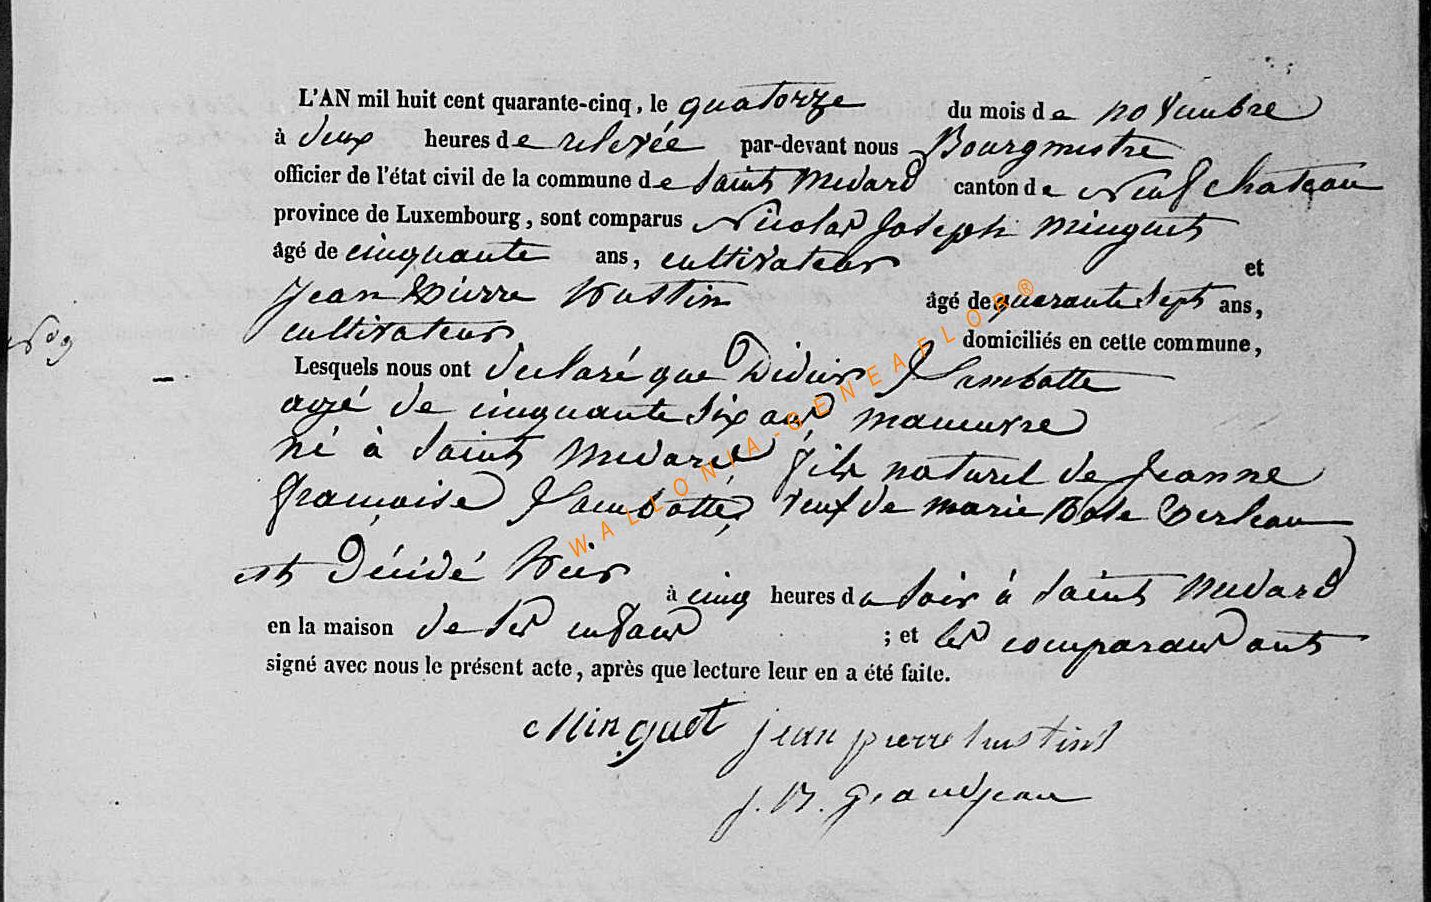 L'AN mil huit cent quarante-cinq, le quatorze du mois de novembre
à deux heures de relevée par-devant nous Bourgmestre
officier de l'état civil de la commune de Saint Medard canton de Neufchateau
province de Luxembourg, sont comparus Nicolas Joseph Minguet
âgé de cinquante ans, cultivateur et
Jean Pierre Hustin âgé de quarante sept ans,
cultivateur domiciliés en cette commune,
Lesquels nous ont declaré que Didier Lambotte
agé de cinquante six ans manœuvre
né à Saint Medard fils naturel de Jeanne
françoise Lambotte, veuf de marie
est Décédé hier à cinq heures du soir à Saint Medard
en la maison de ses enfans ; et les comparans ont
signé avec nous le présent acte, après que lecture leur en a été faite.
Minguet jean pierre hustin
J. B. grandjean
WALLONIA-GENEAFLOR®